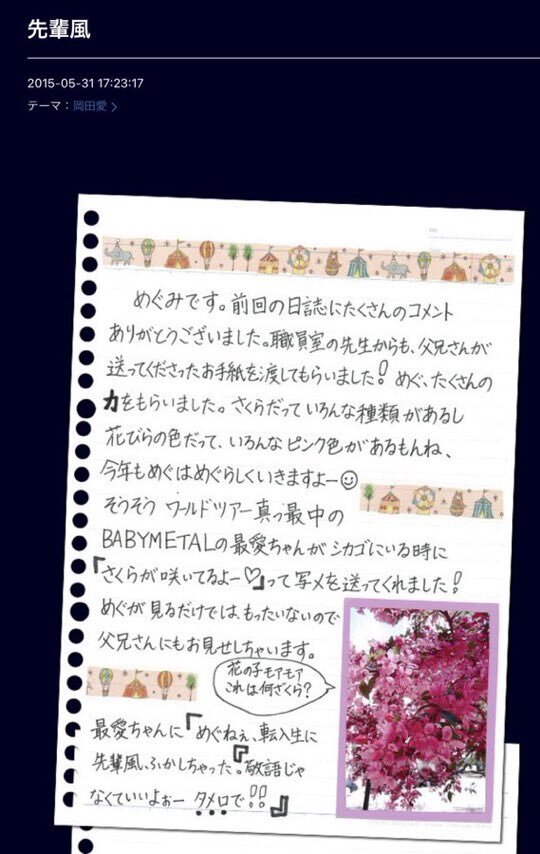 先輩風
2015-05-31 17:23:17
テーマ：岡田愛 >
めぐみです。前回の日誌にたくさんのコメント
ありがとうございました。職員室の先生からも、父兄さんが
送ってくださったお手紙を渡してもらいました！めぐ、たくさんの
力をもらいました。さくらだっていろんな種類があるし
花びらの色だって、いろんなピンク色があるもんね、
今年もめぐはめぐらしくいきますよー☺
そうそう ワールドツアー真っ最中の
BABYMETALの最愛ちゃんがシカゴにいる時に
『さくらが咲いてるよー♡』って写メを送ってくれました！
めぐが見るだけでは、もったいないので
父兄さんにもお見せしちゃいます。
花の子モアモア
これは何ざくら？
最愛ちゃんに『めぐねぇ、転入生に
先輩風、ふかしちゃった。『敬語じゃ
なくていいよぉー タメ口で！！』